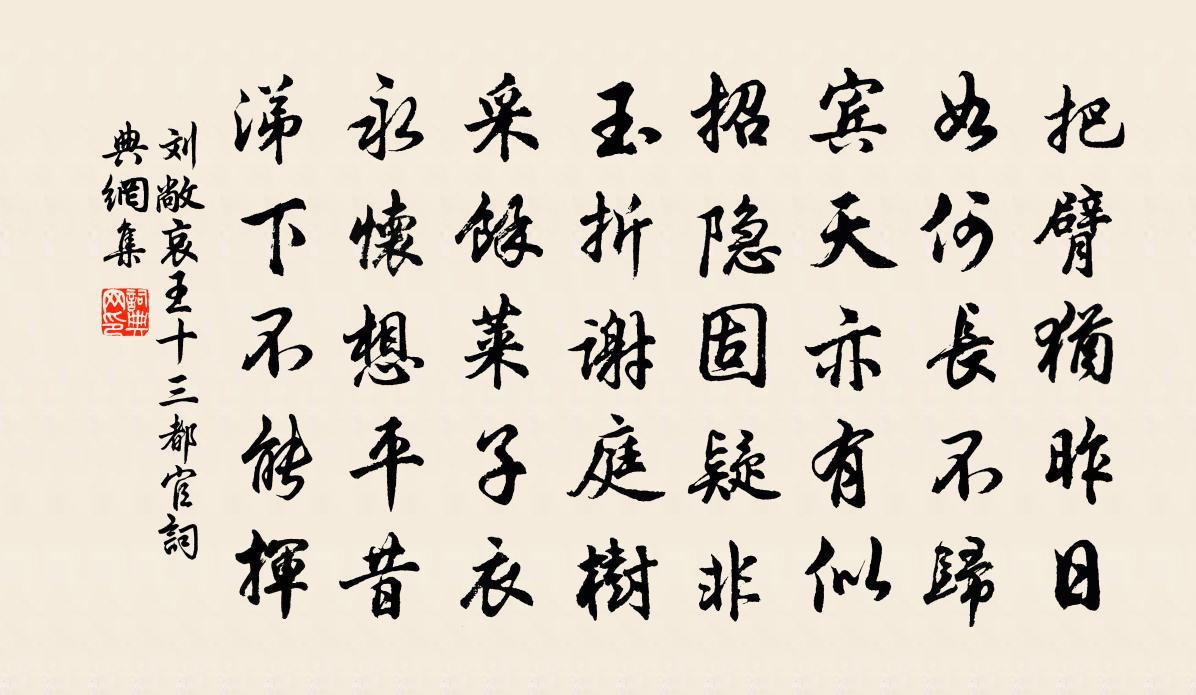 把臂猶昨日
如何長不歸
宾天亦有似
招隐固疑非
玉折谢庭樹
采餘莱子衣
永懷想平昔
涕下不能揮
刘敞哀王十三都官詞
典網集
詞典网印